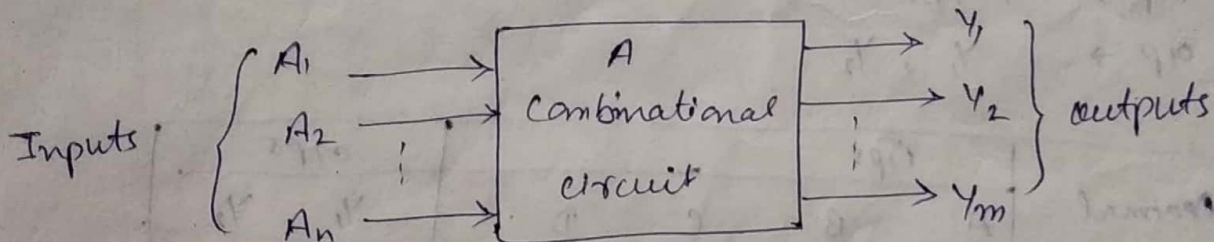 Inputs
A1
A2
An
A
Combinational
circuit
Y1
Y2
Ym
outputs